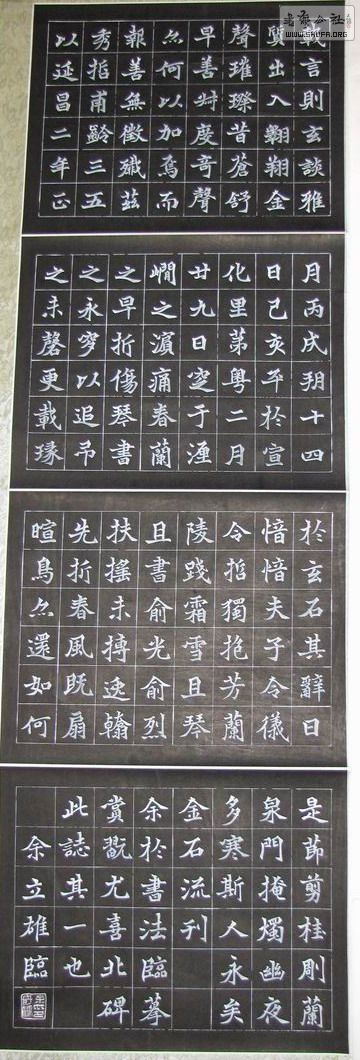 書法公社
WWW.SHUFA.ORG
載言則玄談雅
質出入翱翔金
聲璀璨昔蒼舒
早善艸度奇聲
叅何以加焉而
報善無徵殲茲
秀拓甫齡三五
以延昌二年正
月丙戌朔十四
日己亥卒於宣
化里第粵二月
廿九日窆于湹
㵎之濵痛春蘭
之早折傷琴書
之永穸以追弔
之未罄更載瑑
於玄石其辭曰
愔愔夫子令儀
令哲獨抱芳蘭
陵踐霜雪且琴
且書俞光俞烈
扶搖未摶逸翰
先折春風既扇
暄鳥亦還如何
是節剪桂剛蘭
泉門掩燭幽夜
多寒斯人永矣
金石流刊
余於書法臨摹
賞翫尤喜北碑
此誌其一也
余立雄臨